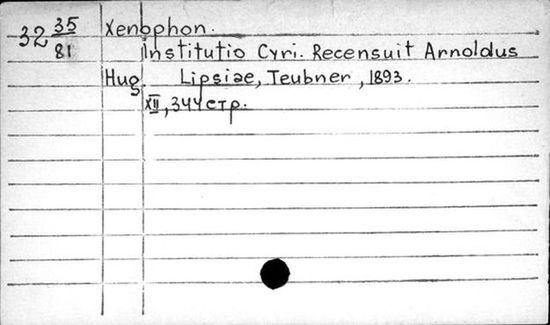 32 35/81
Xenophon.
Institutio Cyri. Recensuit Arnoldus
Hug. Lipsiae, Teubner, 1893.
XII, 344 стр.